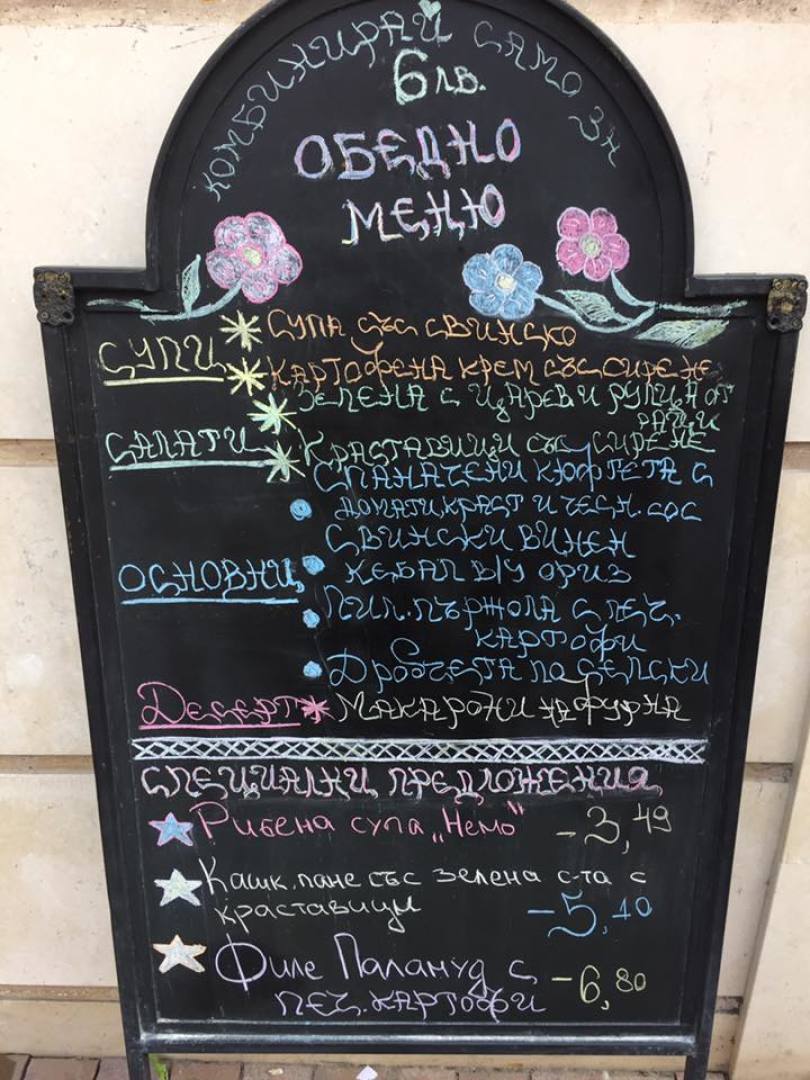 КОМБИНИРАЙ САМО ЗА
6лв.
ОБЕДНО
МЕНЮ
СУПИ
СУПА СЪС СВИНСКО
КАРТОФЕНА КРЕМ СЪС СИРЕНЕ
САЛАТИ
ЗЕЛЕНА С ЦАРЕВИ РУЛЦА ОТ
РАЦИ
КРАСТАВИЦИ СЪС СИРЕНЕ
ОСНОВНИ
СПАНАЧЕНИ КЮФТЕТА С
ДОМАТИ, КРАСТ И ЧЕСН. СОС
СВИНСКИ ВИНЕН
КЕБАП В/У ОРИЗ
ПИЛ. ПЪРЖОЛА С ПЕЧ.
КАРТОФИ
ДРОБЧЕТА ПО СЕЛСКИ
ДЕСЕРТ МАКАРОНИ НА ФУРНА
СПЕЦИАЛНИ ПРЕДЛОЖЕНИЯ
Рибена супа „Немо" - 3,49
Кашк. пане със зелена с-та с
краставици - 5,10
Филе Паламуд с - 6,80
ПЕЧ. КАРТОФИ